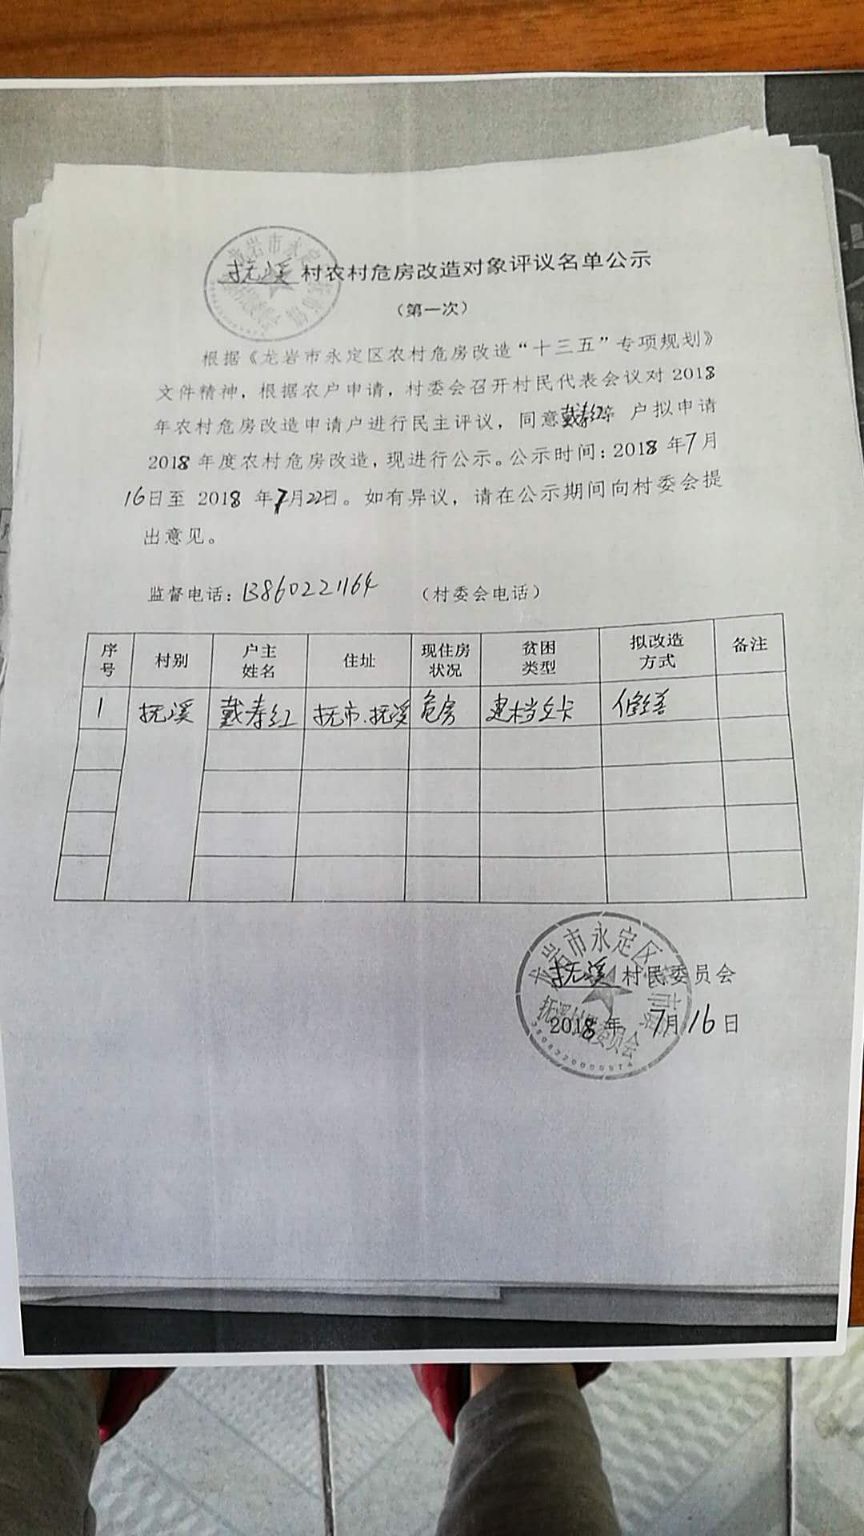 抚溪 村农村危房改造对象评议名单公示
（第一次）
根据《龙岩市永定区农村危房改造“十三五”专项规划》
文件精神，根据农户申请，村委会召开村民代表会议对 2018
年农村危房改造申请户进行民主评议，同意 户拟申请
2018 年度农村危房改造，现进行公示。公示时间：2018 年7月
16日至 2018 年7月22日。如有异议，请在公示期间向村委会提
出意见。
监督电话：13860221164 （村委会电话）
序号 村别 户主姓名 住址 现住房状况 贫困类型 拟改造方式 备注
1 抚溪 戴寿红 抚市.抚溪 危房 建档立卡 修缮
龙岩市永定区
抚溪 村民委员会
抚溪村民委员会
2018 年 7月16日